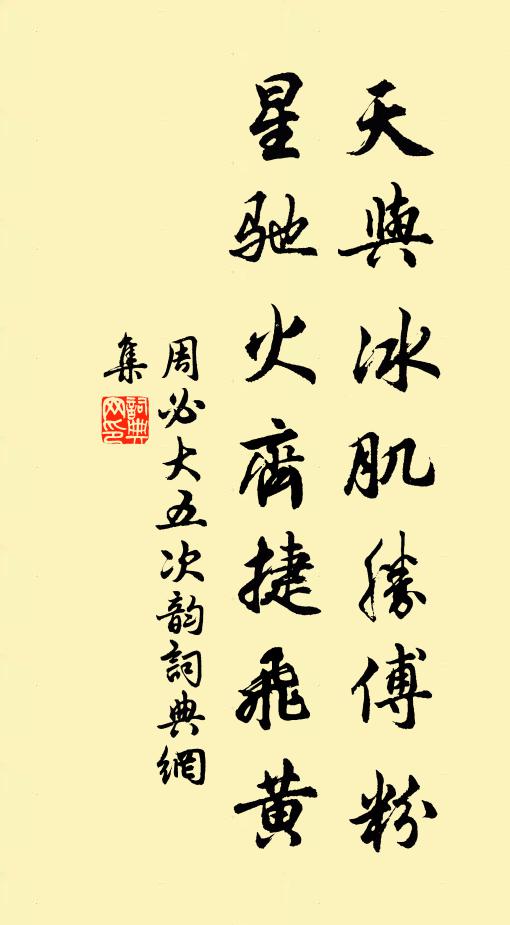 天與冰肌勝傅粉
星馳火齊捷飛黃
周必大五次韵詞典網
集
詞典網印